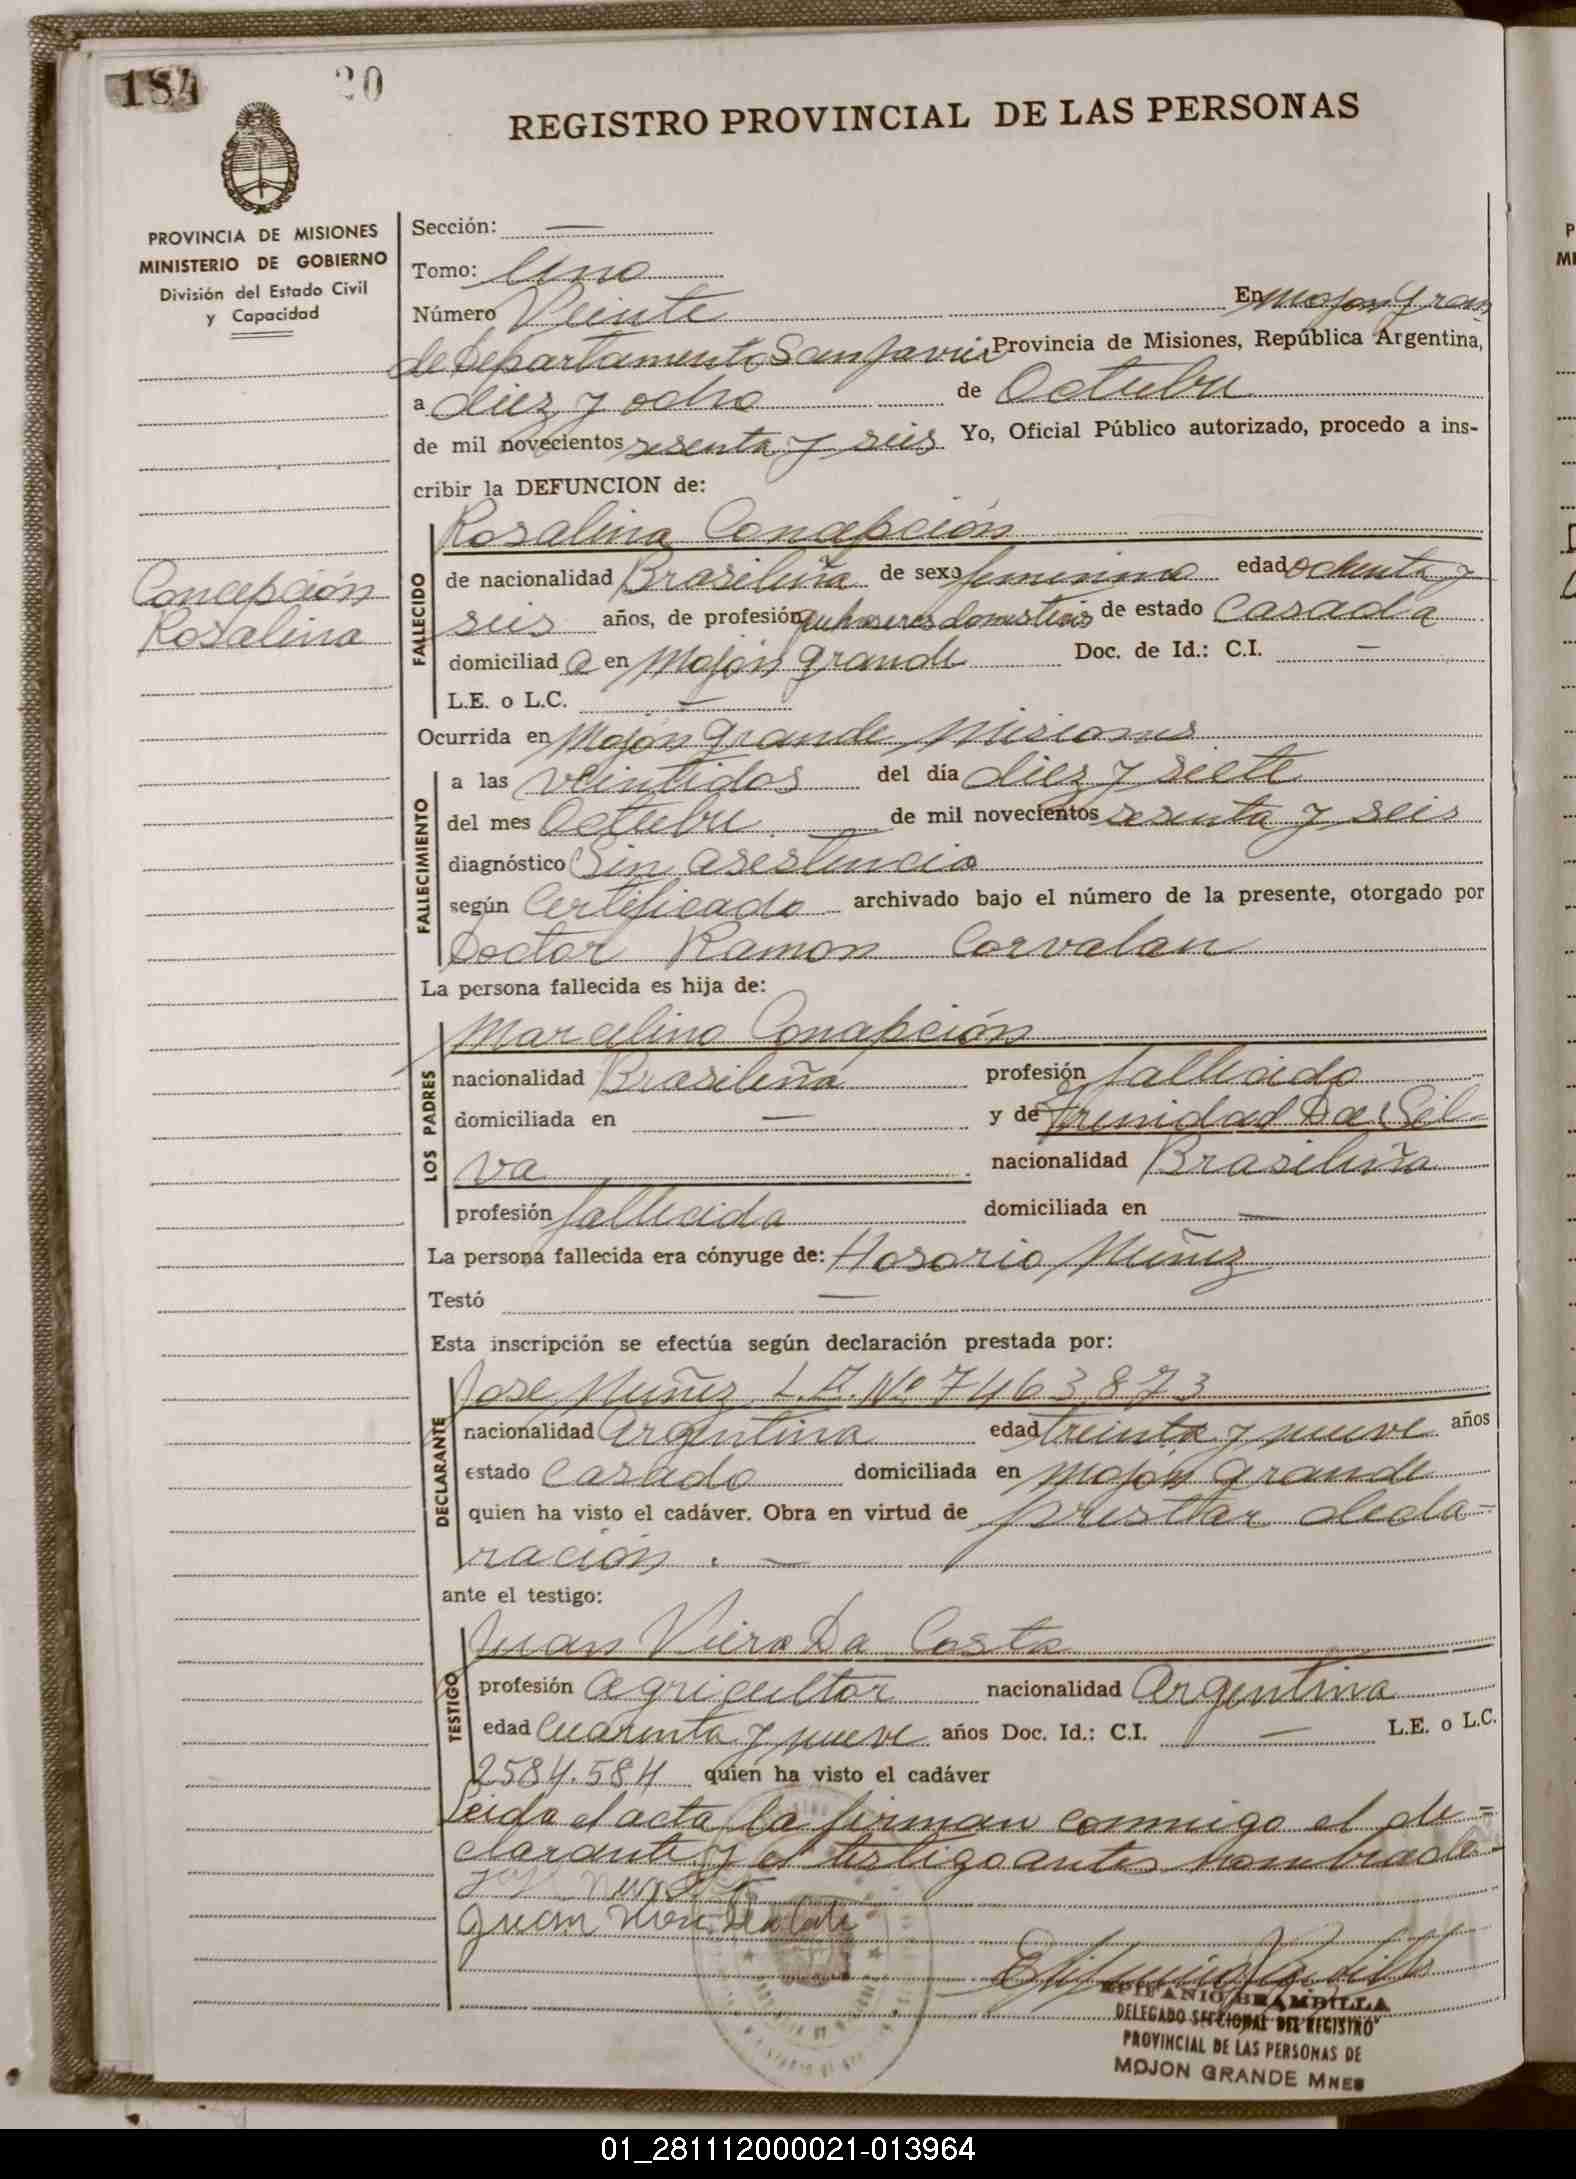 184 20
REGISTRO PROVINCIAL DE LAS PERSONAS
PROVINCIA DE MISIONES
MINISTERIO DE GOBIERNO
División del Estado Civil
y Capacidad
Concepción
Rosalina
Sección: —
Tomo: Uno
Número Veinte En Mojon Gran
de Departamento San Javier Provincia de Misiones, República Argentina,
a diez y ocho de Octubre
de mil novecientos sesenta y seis Yo, Oficial Público autorizado, procedo a ins-
cribir la DEFUNCION de:
FALLECIDO
Rosalina Concepción
de nacionalidad Brasileña de sexo femenino edad ochenta y
seis años, de profesión quehaseres domesticos de estado Casada
domiciliad a en Mojón Grande Doc. de Id.: C.I. —
L.E. o L.C. —
Ocurrida en Mojón Grande Misiones
FALLECIMIENTO
a las veintidos del día diez y siete
del mes Octubre de mil novecientos sesenta y seis
diagnóstico Sin asistencia
según Certificado archivado bajo el número de la presente, otorgado por
Doctor Ramon Corvalan
La persona fallecida es hija de:
LOS PADRES
Marcelino Concepción
nacionalidad Brasileña profesión fallecido
domiciliada en — y de Trenidad Da Sil-
va nacionalidad Brasileña
profesión fallecida domiciliada en —
La persona fallecida era cónyuge de: Hosorio Muñiz
Testó —
Esta inscripción se efectúa según declaración prestada por:
DECLARANTE
Jose Muñiz L.E. Nº 7463.873
nacionalidad Argentina edad treinta y nueve años
estado Casado domiciliada en Mojón Grande
quien ha visto el cadáver. Obra en virtud de prestar decla-
ración. —
ante el testigo:
TESTIGO
Juan Viera Da Costa
profesión agricultor nacionalidad Argentina
edad Cuarenta y nueve años Doc. Id.: C.I. — L.E. o L.C.
2584.584 quien ha visto el cadáver
Leida el acta la firman conmigo el de-
clarante y el testigo antes nombrado-
Juan
EPIFANIO BRAMBILLA
DELEGADO SECCIONAL DEL REGISTRO
PROVINCIAL DE LAS PERSONAS DE
MOJON GRANDE MNES
01_281112000021-013964